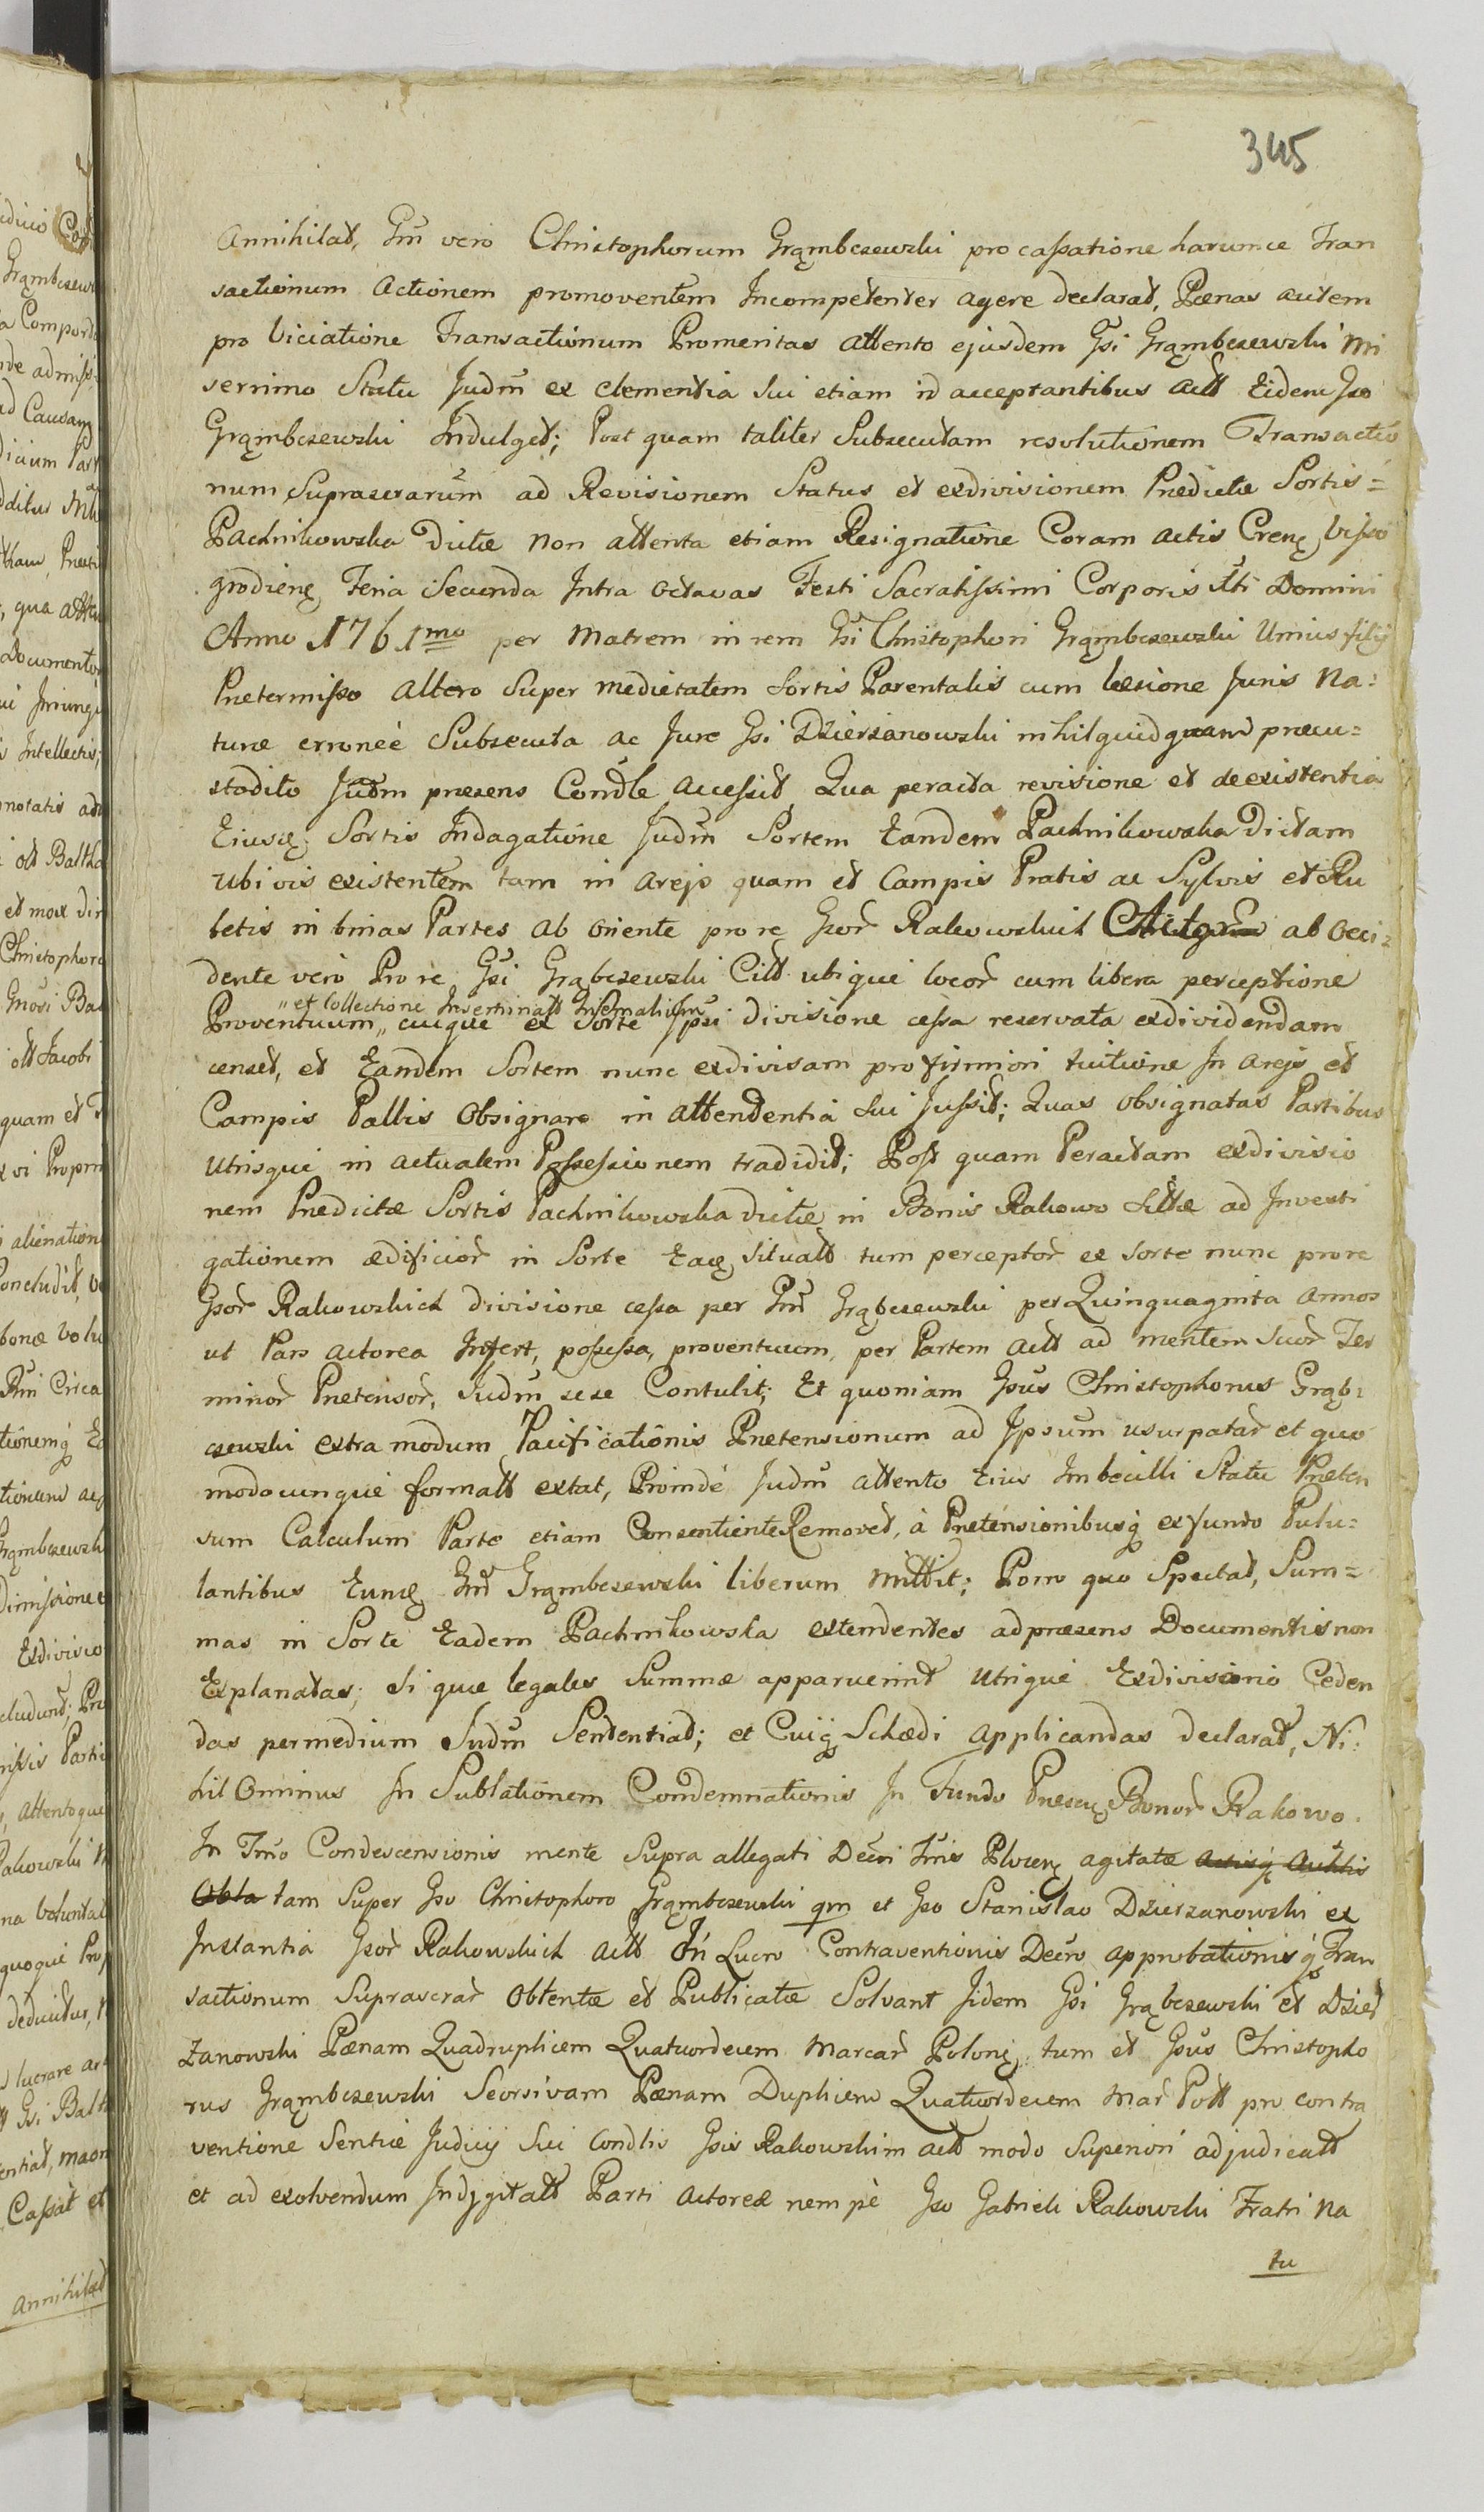 345
Annihilat, Gm̃ vero Christophorum Grąmbczewski pro cassatione harumce Tran
sactionum Actionem promoventem Incompetenter agere declarat, Pænas autem
pro Viciatione Transactionum Promeritas attento ejusdem Gsi Grąmbczewski Mi
serrimo Statu Judm̃ ex Clementia Sui etiam id acceptantibus actt Eidem Gso
Grąmbczewski Indulget; Post quam taliter Subsecutam resolutionem Transactio
num Suprascrarum̃ ad Revisionem Status et exdivisionem Prædictæ Sortis =
Pachnikowska Dictæ Non attenta etiam Resignatione Coram actis Crenẹ Visso
grodienẹ Feria Secunda Intra octavas Festi Sacratissimi Corporis Xti Domini
Anno 1761mo per Matrem in rem Gsi Christophori Grąmbczewski Unius filij
Prætermisso altero Super medietatem Sortis Parentalis cum læsione Juris Na:
turæ erroneè Subsecuta ac Jure Gsi Dzierżanowski nihilquidquam præcu=
stodito Judm̃ præsens Condle accessit, Qua peracta revisione et de existentia
Eiusdẹ Sortis Indagatione Judm̃ Sortem Eandem Pachnikowska Dictam
ubivis existentem tam in Arejs quam et Campis Pratis ac Sylvis et Ru
betis in binas Partes ab oriente pro re Gsor̃ Rakowskich ab occi=
dente verò Pro re Gsi Grąbczewski Citt ubiqui locor̃ cum libera perceptione
„ et Collectione
Proventuum „ cuique ex Sorte Ipsi divisione cessa reservata exdividendam
censet, et Eandem Sortem nunc exdivisam pro firmiori tuitione In arejs et
Campis Pallis Obsignare in attendentia Sui Jussit; Quas obsignatas Partibus
Utrisqui in actualem Possessionem tradidit; Post quam Peractam exdivisio
nem Prædictæ Sortis Pachnikowska dictæ in Bonis Rakowo Sittæ ad Investi
gationem ædificior̃ in Sorte Eadẹ situatt tum perceptor̃ ex sorte nunc pro re
Gsor̃ Rakowskich divisione cessa per Gm̃ Grąbczewski per Quinquaginta annos
ut Pars actorea Infert, possessa, proventuum, per Partem actt ad mentem suor̃ Ter
minor̃ Prætensor̃, Judm̃ sese Contulit; Et quoniam Gsus Christophorus Grąb=
czewski extra modum Pacificationis Prætensionum ad Ipsum usurpatar̃ et quo
modocunqui formatt extat, Proindè Judm̃ attento Eius Imbecilli Statu Præten
sum Calculum Parte etiam Consentiente Removet, à Prætensionibusq̃ ex fundo Pulu=
lantibus Eundẹ Gm̃ Grąmbczewski liberum Mittit; Porro quo Spectat, Sum=
mas in Sorte Eadem Pachnikowska extendentes ad præsens Documentis non
Explanatas, Si quæ legales Summæ apparuerint Utrique Exdivisorio Ceden
das per medium Judm̃ Sententiat; et Cuiq̃ Schedi Applicandas declarat, Ni:
hil Ominus In Sublationem Condemnationis In Fundo Præsenẹ Bonor̃ Rakowo.
In Tmo Condescensionis mente Supra allegati Decri Tris Plocenẹ agitatæ actisq̃
Obla tam Super Gso Christophoro Grąmbczewski qm et Gso Stanislao Dzierżanowski ex
Instantia Gsor̃ Rakowskich actt In Lucro Contraventionis Decro approbationisq̃ Tran
sactionum Suprascrar̃ Obtentæ et Publicatæ Solvant Jidem Gsi Grąbczewski et Dzier
żanowski Pænam Quadruplicem Quatuordecem Marcar̃ Polonẹ tum et Gsus Christopho
rus Grąmbczewski Seorsivam Pænam Duplicem Quatuordecem Mar̃ Pott pro contra
ventione Sentiæ Judicij Sui Condlis Gsis Rakowskim actt modo Superiori adjudicatt
et ad exolvendum Indigitatt Parti actoreæ nempè Gso Gabrieli Rakowski Fratri Na
tu